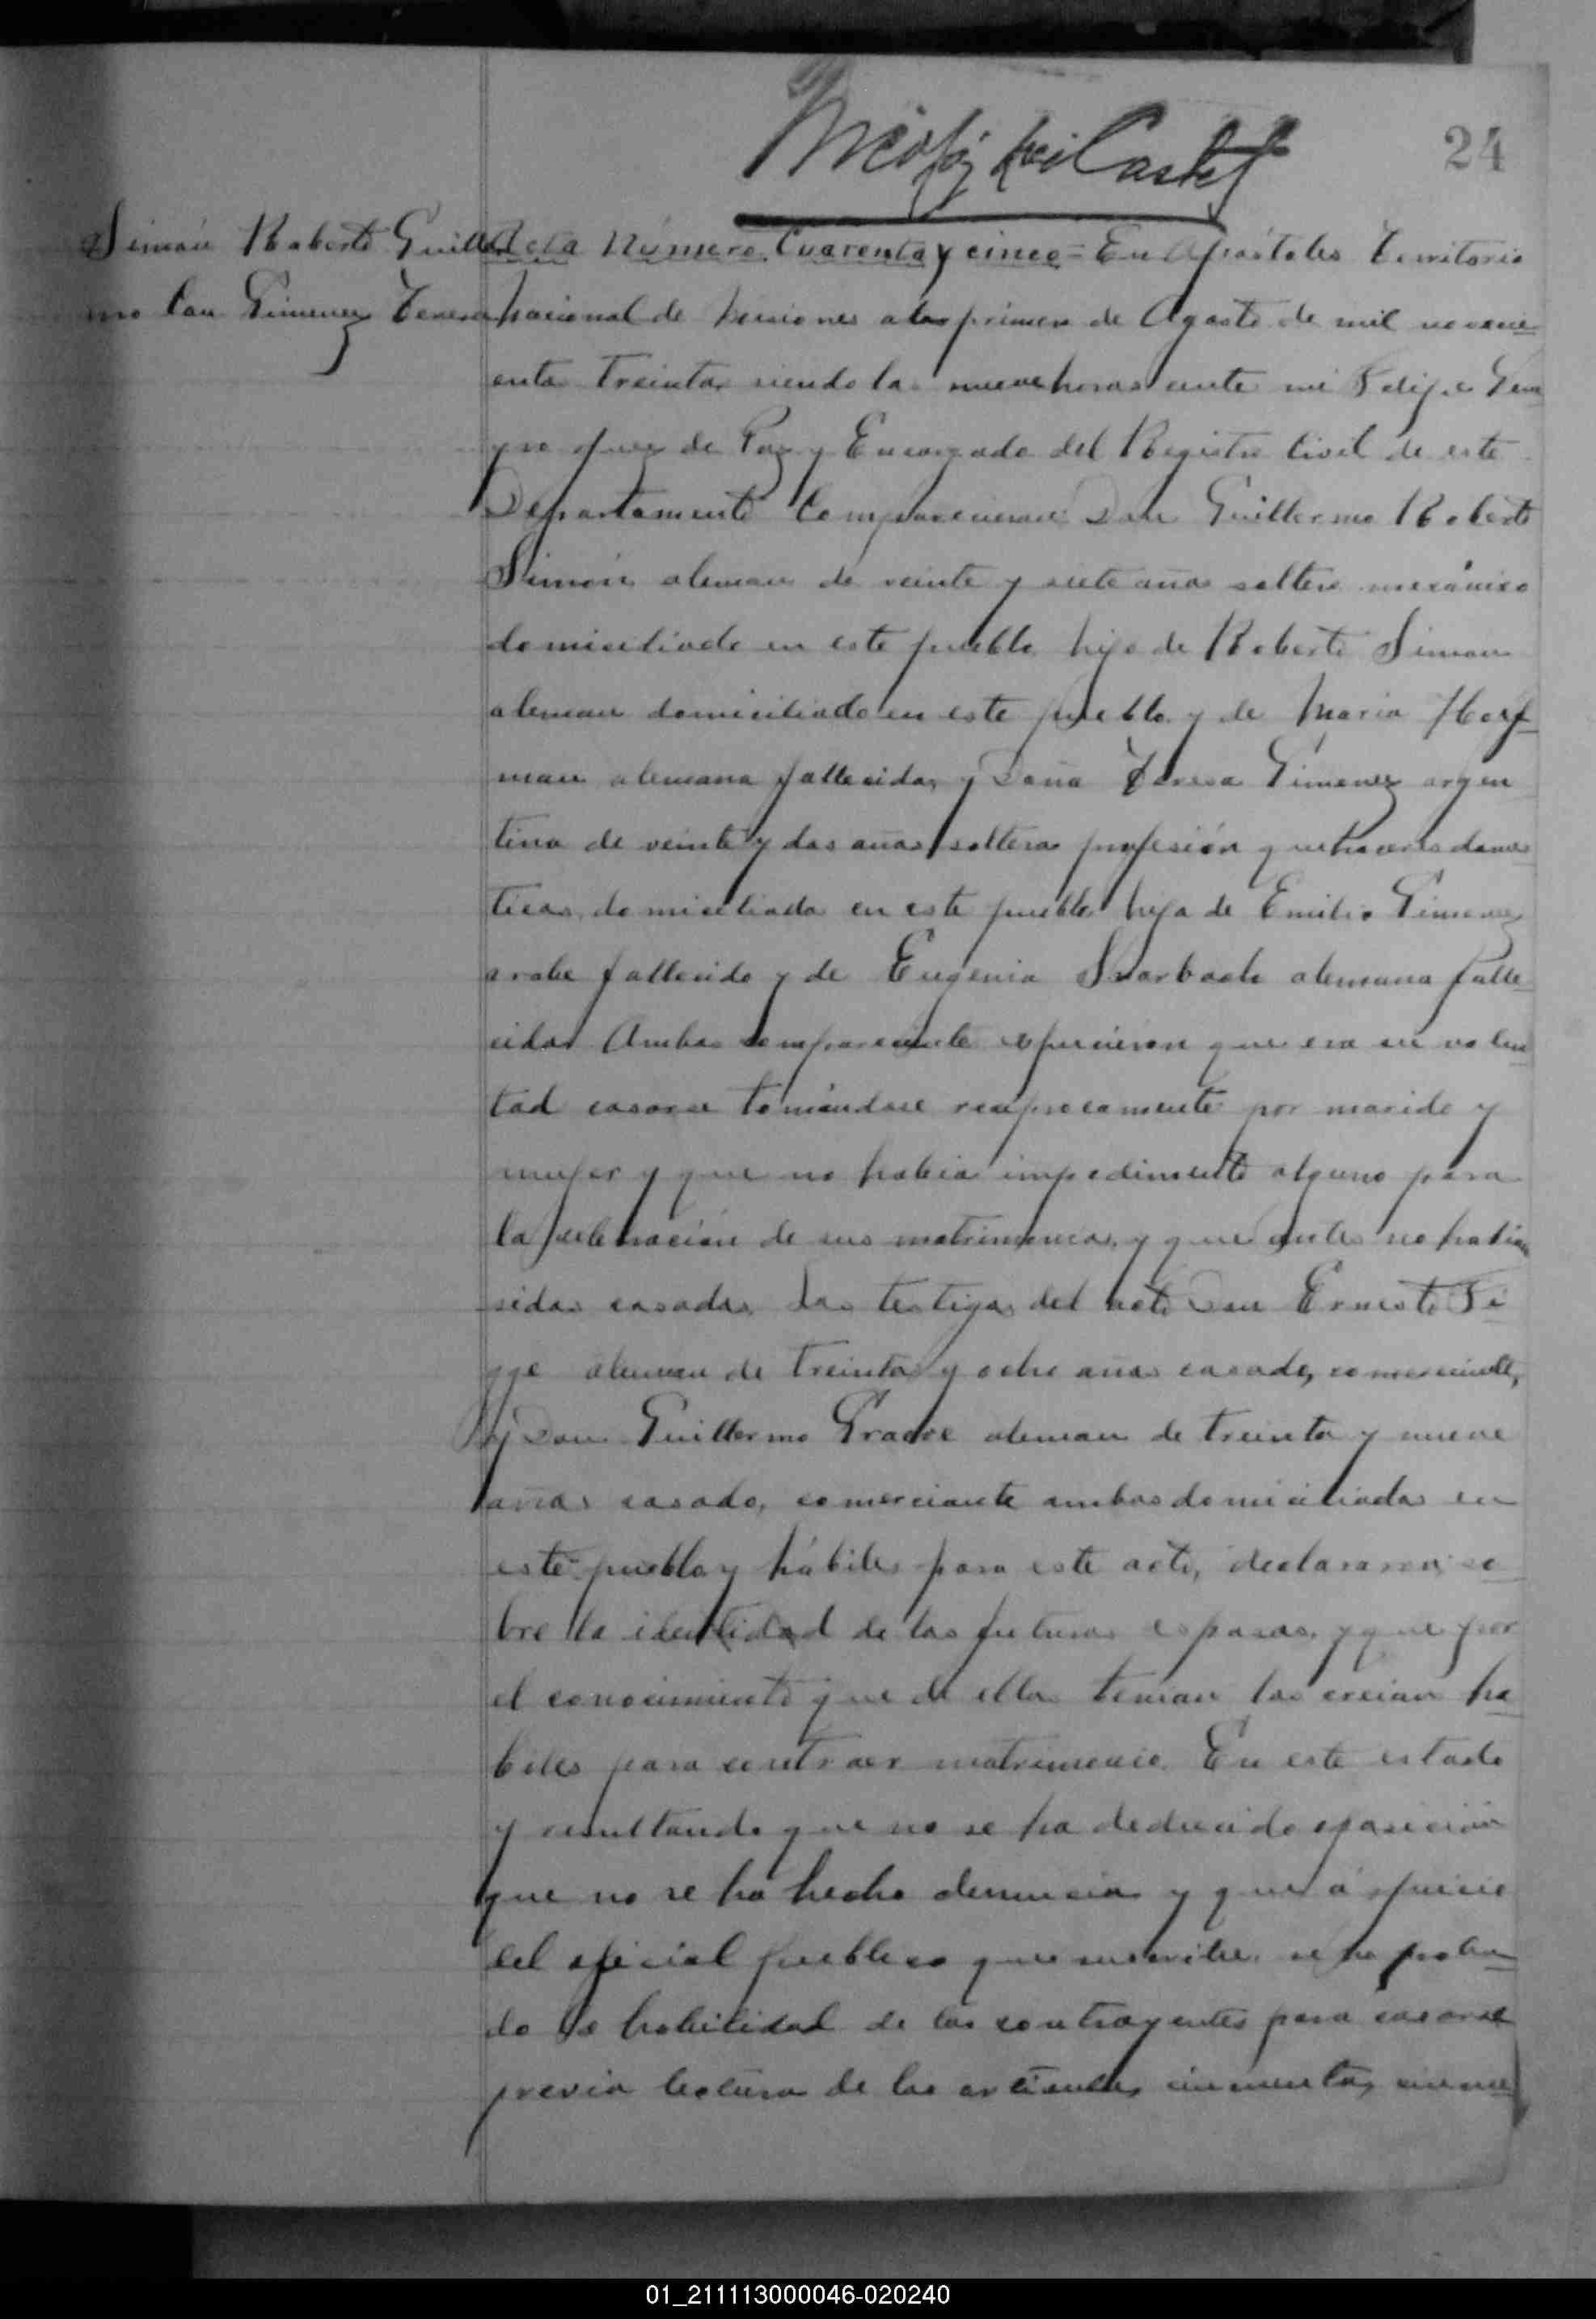 24
Simón Roberto Guiller
mo con Gimenez Teresa
Acta Número Cuarenta y cinco = En Apóstoles Territorio
Nacional de Misiones a los primero de Agosto de mil novecie
entos treinta siendo las nueve horas ante mi Felipe
Juez de Paz y Encargado del Registro Civil de este
Departamento Comparecieron Don Guillermo Roberto
Simón aleman de veinte y siete años soltero mecánico
domiciliado en este pueblo hijo de Roberto Simón
aleman domiciliado en este pueblo y de Maria Hoff
man alemana fallecida, y Doña Teresa Gimenez argen
tina de veinte y dos años soltera profesión quehaceres domes
ticos, domiciliada en este pueblo hija de Emilio Gimenez
arabe fallecido y de Eugenia alemana falle
cida. Ambos comparecientes expusieron que era su volun
tad casarse tomándose reciprocamente por marido y
mujer y que no habia impedimento alguno para
la celebración de sus matrimonios, y que antes no habian
sidos casados. Los testigos del acto Don Ernesto Fi
gge aleman de treinta y ocho años casado, comerciante,
y Don Guillermo aleman de treinta y nueve
años casado, comerciante ambos domiciliados en
este pueblo y hábiles para este acto, declararon so
bre la identidad de los futuros esposos, y que por
el conocimiento que de ellos tenian los creian ha
biles para contraer matrimonio. En este estado
y resultando que no se ha deducido oposición
que no se ha hecho denuncia y que á juicio
del oficial publico que suscribe se ha proba
do la habilidad de los contrayentes para casarse
previa lectura de los articulos cincuenta, cincue
01_211113000046-020240